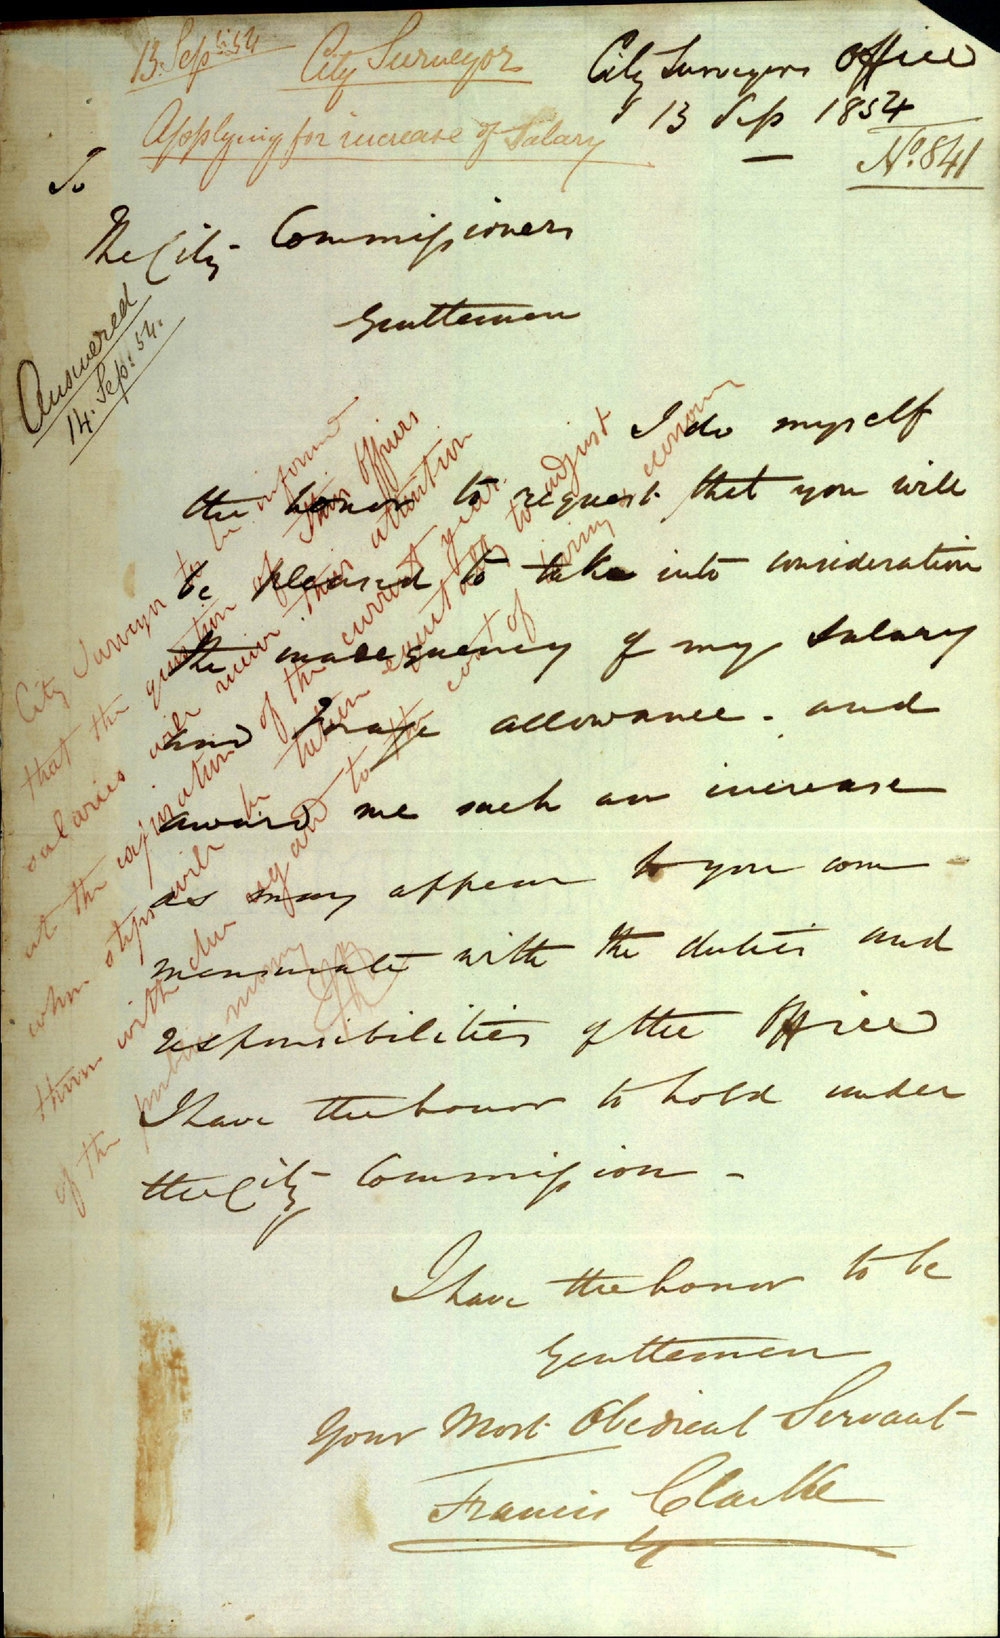 13. Sept. 54 City Surveyor
Applying for increase of Salary
City Surveyors Office
13 Sep 1854
No. 841
To
The City Commissioners
Gentlemen
Answered
14. Sep: 54.
I do myself
the honor to request that you will
be pleased to take into consideration
the inadequency of my salary
and forage allowance. and
award me such an increase
as may appear to you com
mensurate with the duties and
responsibilities of the Office
I have the honor to hold under
the City Commission -
I have the honor to be
Gentlemen
Your Most Obedient Servant
Francis Clarke
City Surveyor to be informed
that the question of their officers
salaries will receive their attention
at the expiration of the current year.
when steps will be taken to adjust
them with due regard to the cost of living &
of the public money